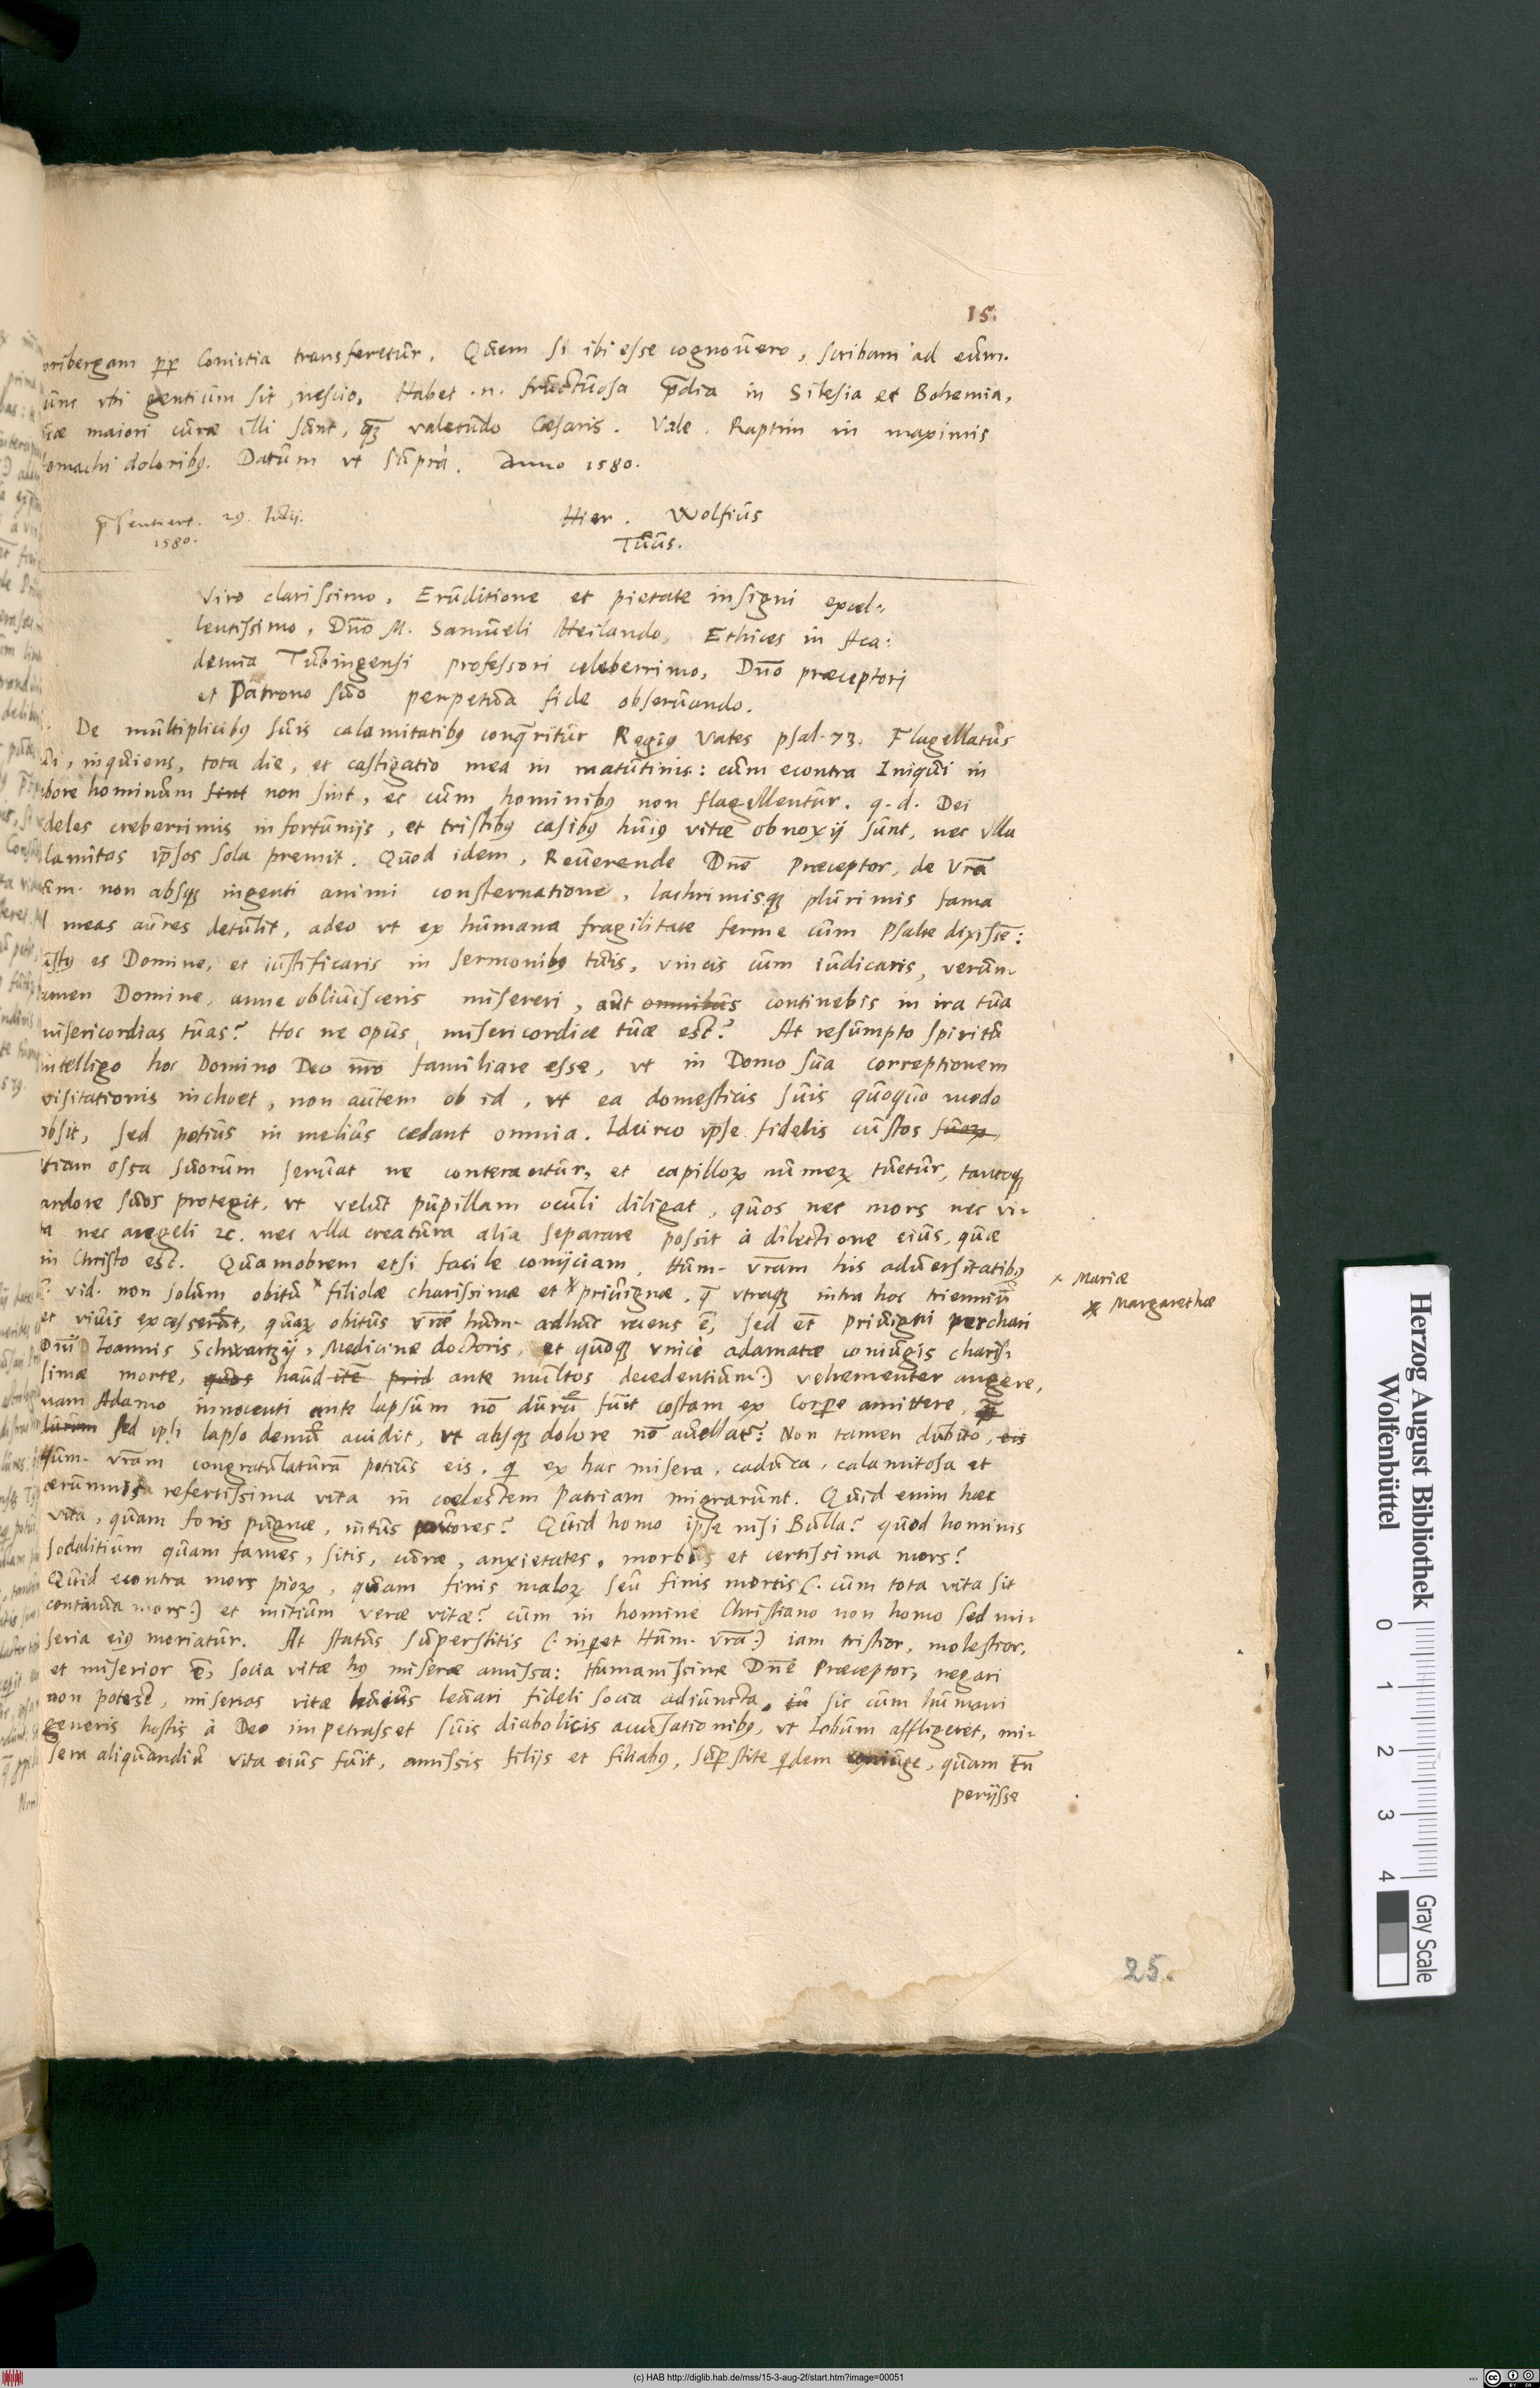 15.
oribergam ꝓꝑ Comitia transferetur. Quem si ibi esse cognouero, scribam ad eum.
unc vbi gentium sit, nescio. Habet .n. fructuosa p̄dia in Silesia et Bohemia,
uæ maiori curæ illi sunt, quā valetudo Cæsaris. Vale. Raptim in maximis
tomachi doloribꝰ. Datum vt supra. Anno 1580.
p̄sentat. 29. Julij.
1580.
Hier. Wolfius
Tuus.
Viro clarissimo, Eruditione et pietate insigni excel-
lentissimo, Dnō M. Samueli Heilando, Ethices in Aca:
demia Tubingensi professori celeberrimo, Dnō præceptori
et Patrono suo perpetua fide obseruando.
De multiplicibꝰ suis calamitatibꝰ conq̄ritur Regiꝰ Vates psal. 73. Flagellatus
ui, inquiens, tota die, et castigatio mea in matutinis: cum econtra Iniqui in
bore hominum sint non sint, et cum hominibꝰ non flagellentur. q. d. Dei
deles creberrimis infortunijs, et tristibꝰ casibꝰ huiꝰ vitæ obnoxij sunt, nec vlla
lamitas ip̄sos sola premit. Quod idem, Reuerende Dnē Præceptor, de Vrā
um. non absqꝫ ingenti animi consternatione, lachrimisqꝫ plurimis fama
d meas aures detulit, adeo vt ex humana fragilitate ferme cum Psalte dixissē:
ustꝰ es Domine, et iustificaris in sermonibꝰ tuis, vincis cum iudicaris, verum-
tamen Domine, anne obliuisceris misereri, aut omnibus continebis in ira tua
misericordias tuas? Hoc ne opus misericordiæ tuæ est? At resumpto spiritu
intelligo hoc Domino Deo nr̄o familiare esse, vt in Domo sua correptionem
visitationis inchoet, non autem ob id, vt ea domesticis suis quoquo modo
obsit, sed potius in melius cedant omnia. Idcirco ip̄se fidelis custos suoꝝ
etiam ossa suorum seruat ne conterantur, et capilloꝝ numeꝝ tuetur, tantoqꝫ
ardore suos protegit, vt velut pupillam oculi diligat, quos nec mors nec vi-
ta nec angeli ꝛc. nec vlla creatura alia separare possit à dilectione eius, quæ
in Christo est. Quamobrem etsi facile conijciam, Hum. vrām his aduersitatibꝰ
vid. non solum obitu × filiolæ charissimæ et × priuignæ, q̄ vtraqꝫ intra hoc trienniū
× Mariæ
× Margarethæ
et viuis excesserūt, quaꝝ obitus vrāe hum. adhuc recens ē, sed et priuigni perchari
Dnī Ioannis Schwartzij, Medicinæ doctoris, et quoqꝫ vnicè adamatæ coniugis charis-
simæ morte, quos haud itē prid ante multos decedentium:) vehementer angere,
nam Adamo innocenti ante lapsum nō durū fuit costam ex Corpe amittere,
sed ipsi lapso demū accidit, vt absqꝫ dolore nō auellatur: Non tamen dubito, eis
Hum. vrām congratulaturā potius eis, qi ex hac misera, caduca, calamitosa et
ærumnis refertissima vita in coelestem Patriam migrarunt. Quid enim hæc
vita, quam foris pugnæ, intus pauores? Quid homo ipse nisi Bulla? quod hominis
sodalitium quam fames, sitis, curæ, anxietates, morbi et certissima mors?
Quid econtra mors pioꝝ, quam finis maloꝝ seu finis mortis (: cum tota vita sit
continua mors:) et initium veræ vitæ? cum in homine Christiano non homo sed mi-
seria eiꝰ moriatur. At status superstitis (: inqꝫet Hum. vrā:) iam tristior, molestior,
et miserior ē, socia vitæ hꝰ miseræ amissa: Humanissime Dnē Præceptor, negari
non potest, miserias vitæ leuius leuari fideli socia adiuncta, sic cum humani
generis hostis à Deo impetrasset suis diabolicis accusationibꝰ, vt Iobum affligeret, mi-
sera aliquandiu vita eius fuit, amissis filijs et filiabꝰ, supstite qdem coniuge, quam tn̄
perijsse
25.
Herzog August Bibliothek
Wolfenbüttel
0 1 2 3 4
Gray Scale
(c) HAB http://diglib.hab.de/mss/15-3-aug-2f/start.htm?image=00051